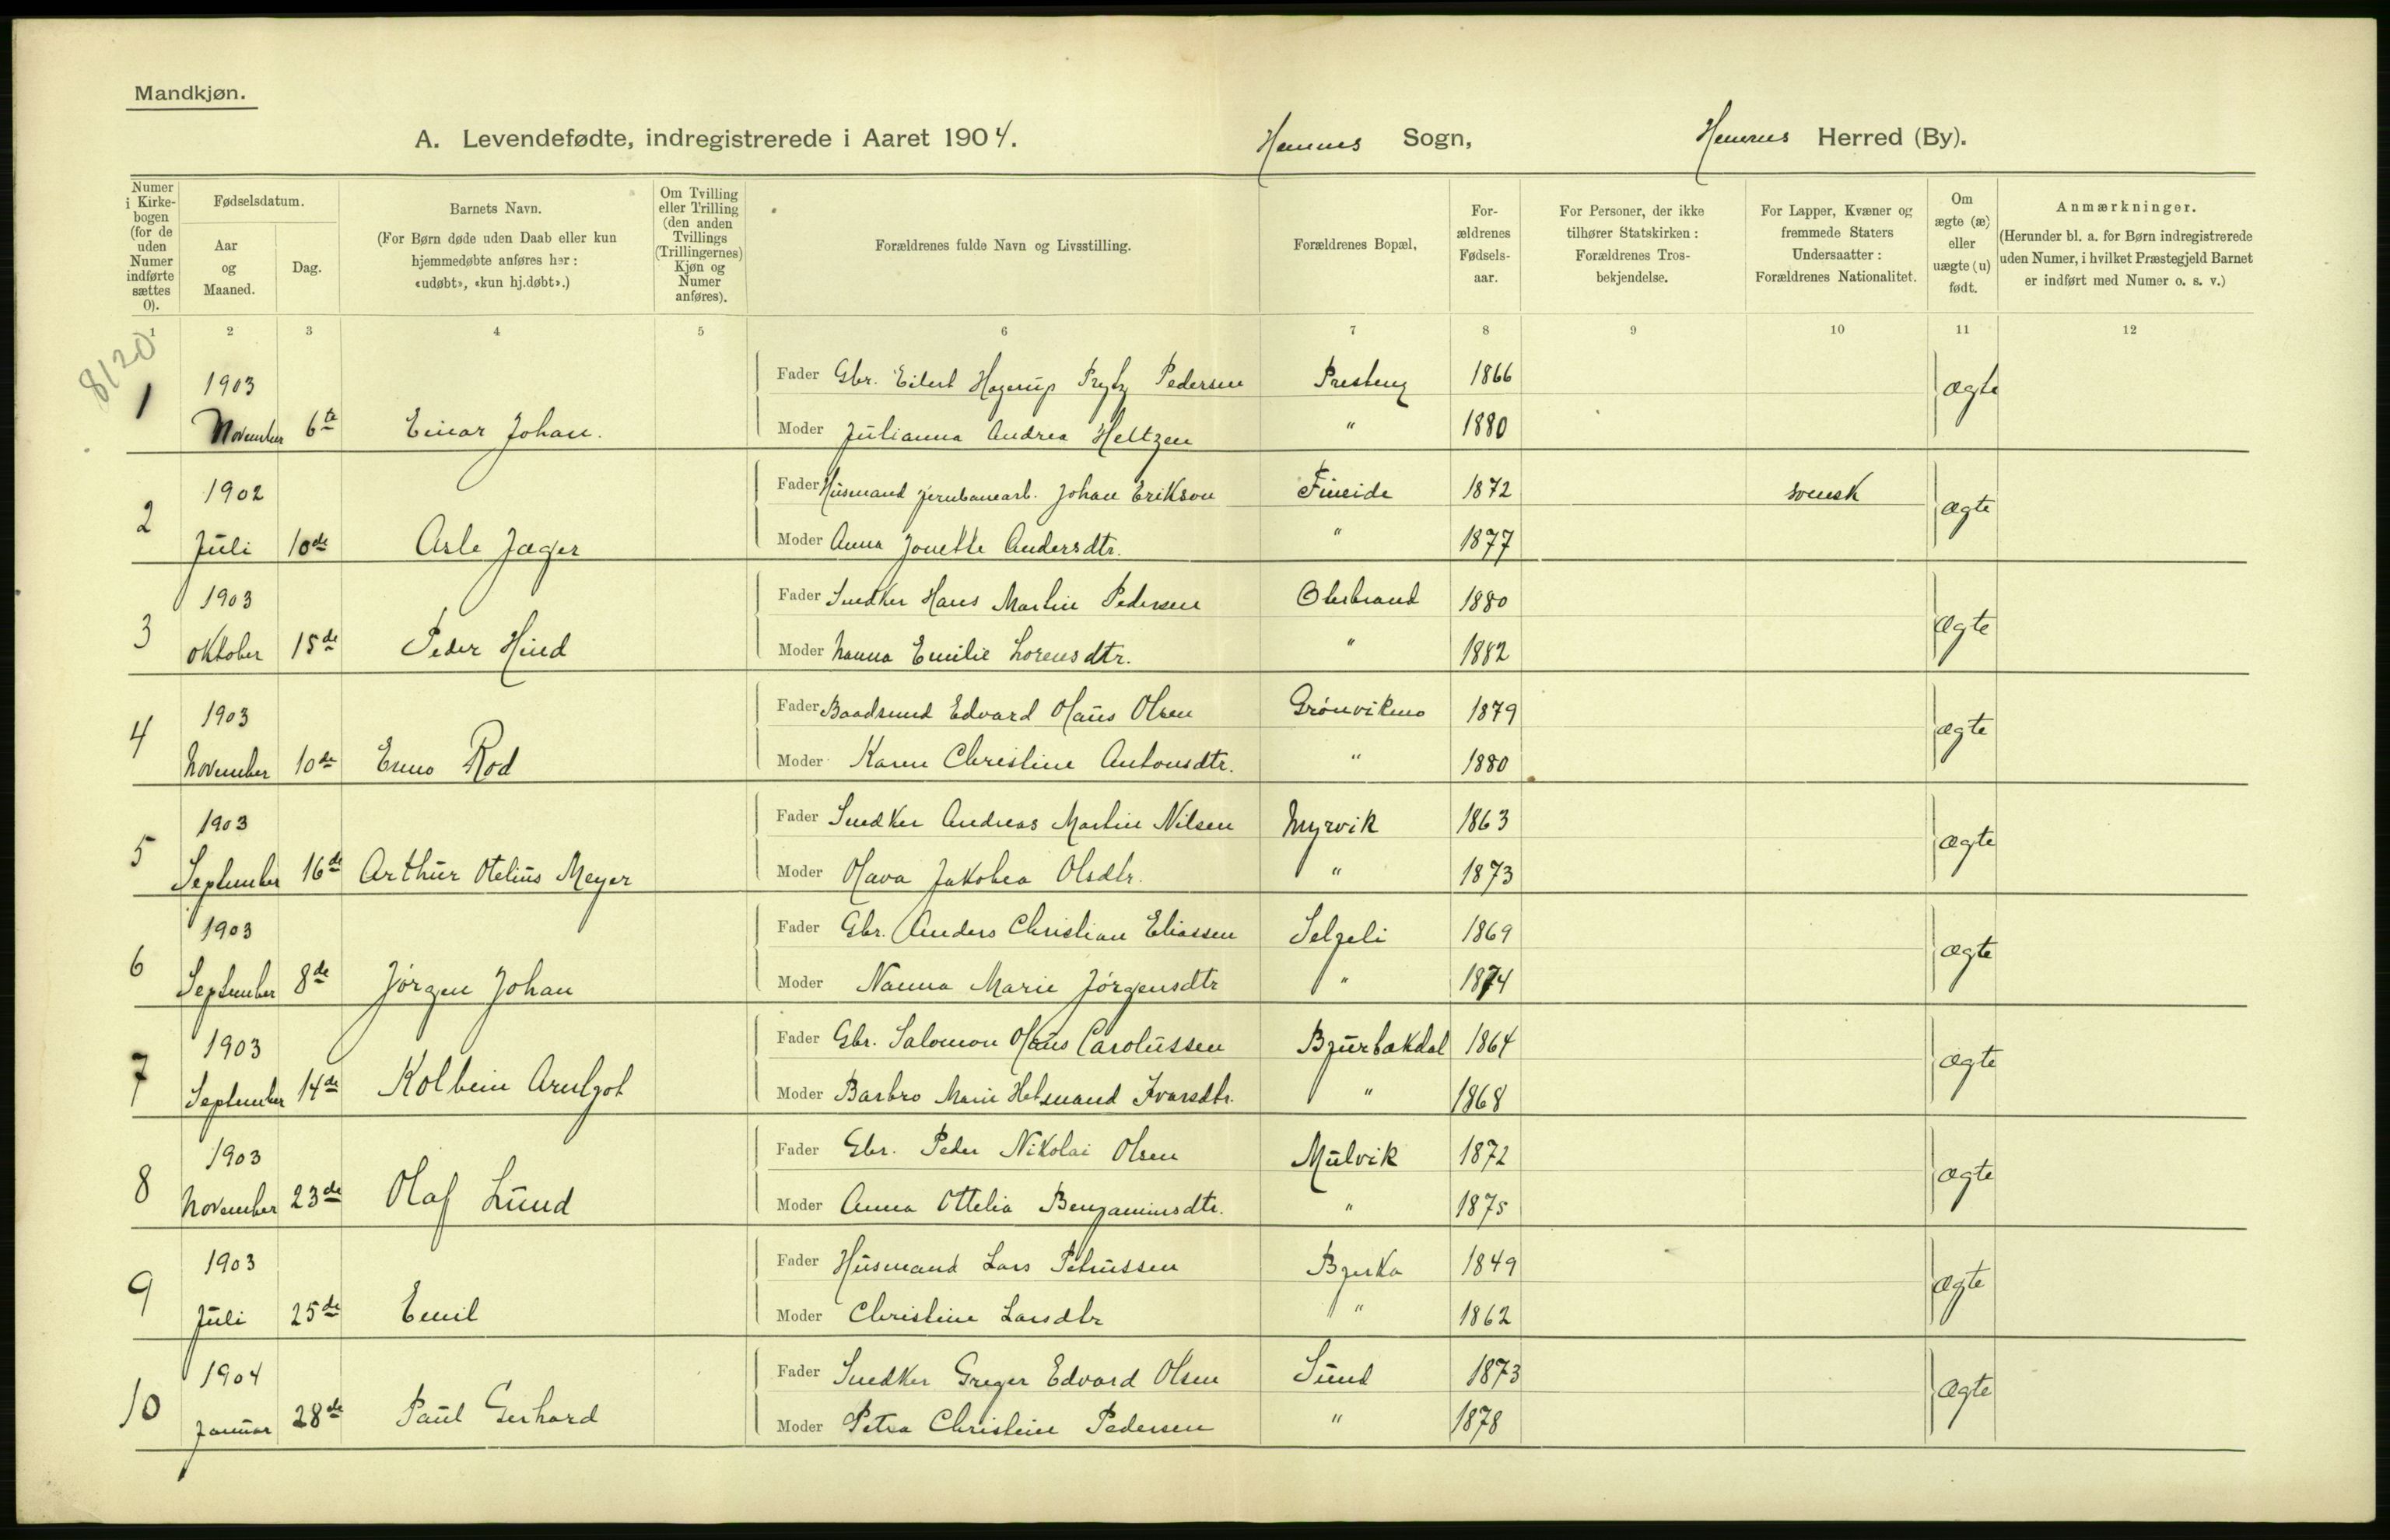 Mandkjøn.
A. Levendefødte, indregistrerede i Aaret 1904. Hemnes Sogn, Hemnes Herred (By).
Numer i Kirkebogen (for de uden Numer indførte sættes 0).
Fødselsdatum.
Aar og Maaned.
Dag.
Barnets Navn.
(For Børn døde uden Daab eller kun hjemmedøbte anføres her: «udøbt», «kun hj.døbt».)
Om Tvilling eller Trilling (den anden Tvillings (Trillingernes) Kjøn og Numer anføres).
Forældrenes fulde Navn og Livsstilling.
Forældrenes Bopæl,
Forældrenes Fødselsaar.
For Personer, der ikke tilhører Statskirken: Forældrenes Trosbekjendelse.
For Lapper, Kvæner og fremmede Staters Undersaatter: Forældrenes Nationalitet.
Om ægte (æ) eller uægte (u) født.
Anmærkninger.
(Herunder bl. a. for Børn indregistrerede uden Numer, i hvilket Præstegjeld Barnet er indført med Numer o. s. v.)
1 2 3 4 5 6 7 8 9 10 11 12
8120
1903 Fader Gbr. Eilert Hagerup Prytz Pedersen Presteng 1866 ægte
1 November 6te Einar Johan. Moder Julianna Andrea Heltzen " 1880
1902 Fader Husmand jernbanearb. Johan Erikson Fineide 1872 svensk ægte
2 Juli 10de Asle Jæger Moder Anna Jonette Andersdtr. " 1877
1903 Fader Snedker Hans Martin Pedersen 1880 ægte
3 Oktober 15de Peder Hind Moder Nanna Emilie Lorensdtr. " 1882
1903 Fader Baadsmed Edvard Hans Olsen Grønvikmo 1879 ægte
4 November 10de Enno Rod Moder Karen Christine Antonsdtr. " 1880
1903 Fader Snedker Andreas Martin Nilsen Myrvik 1863 ægte
5 September 16de Arthur Otelius Meyer Moder Hava Jakobea Olsdtr. " 1873
1903 Fader Gbr. Anders Christian Eliassen Seljeli 1869 ægte
6 September 8de Jørgen Johan Moder Nanna Marie Jørgensdtr " 1874
1903 Fader Gbr. Salomon Hans Carolussen Bjurbækdal 1864 ægte
7 September 14de Kolbein Arnljot Moder Barbro Marie Ivarsdtr. " 1868
1903 Fader Gbr. Peder Nikolai Olsen Mulvik 1872 ægte
8 November 23de Olaf Lund Moder Anna Ottelia Benjaminsdtr. " 1875
1903 Fader Husmand Lars Petrussen Bjerka 1849 ægte
9 Juli 25de Emil Moder Christine Larsdtr " 1862
1904 Fader Snedker Greger Edvard Olsen Sund 1873 ægte
10 Januar 28de Paul Gerhard Moder Petra Christine Pedersen " 1878